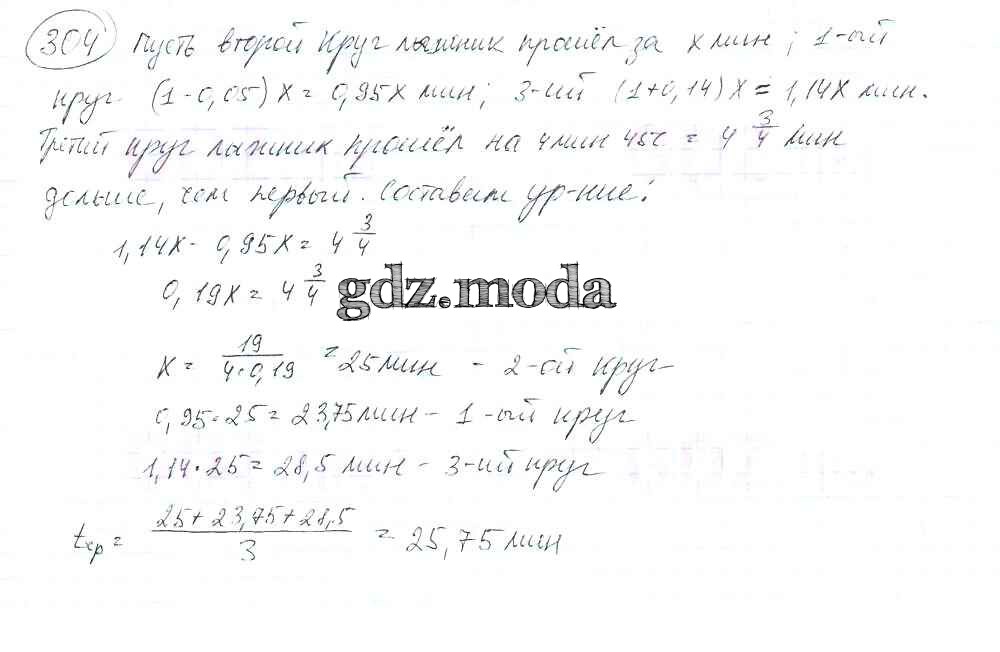 304 Пусть второй круг лыжник прошёл за x мин; 1-ый
круг (1-0,05)x = 0,95x мин; 3-ий (1+0,14)x = 1,14x мин.
Третий круг лыжник прошёл на 4 мин 45с = 4 3/4 мин
дольше, чем первый. Составим ур-ние:
1,14x - 0,95x = 4 3/4
0,19x = 4 3/4
gdz.moda
x = 19/(4·0,19) = 25 мин - 2-ой круг
0,95·25 = 23,75 мин - 1-ый круг
1,14·25 = 28,5 мин - 3-ий круг
tср = (25+23,75+28,5)/3 = 25,75 мин